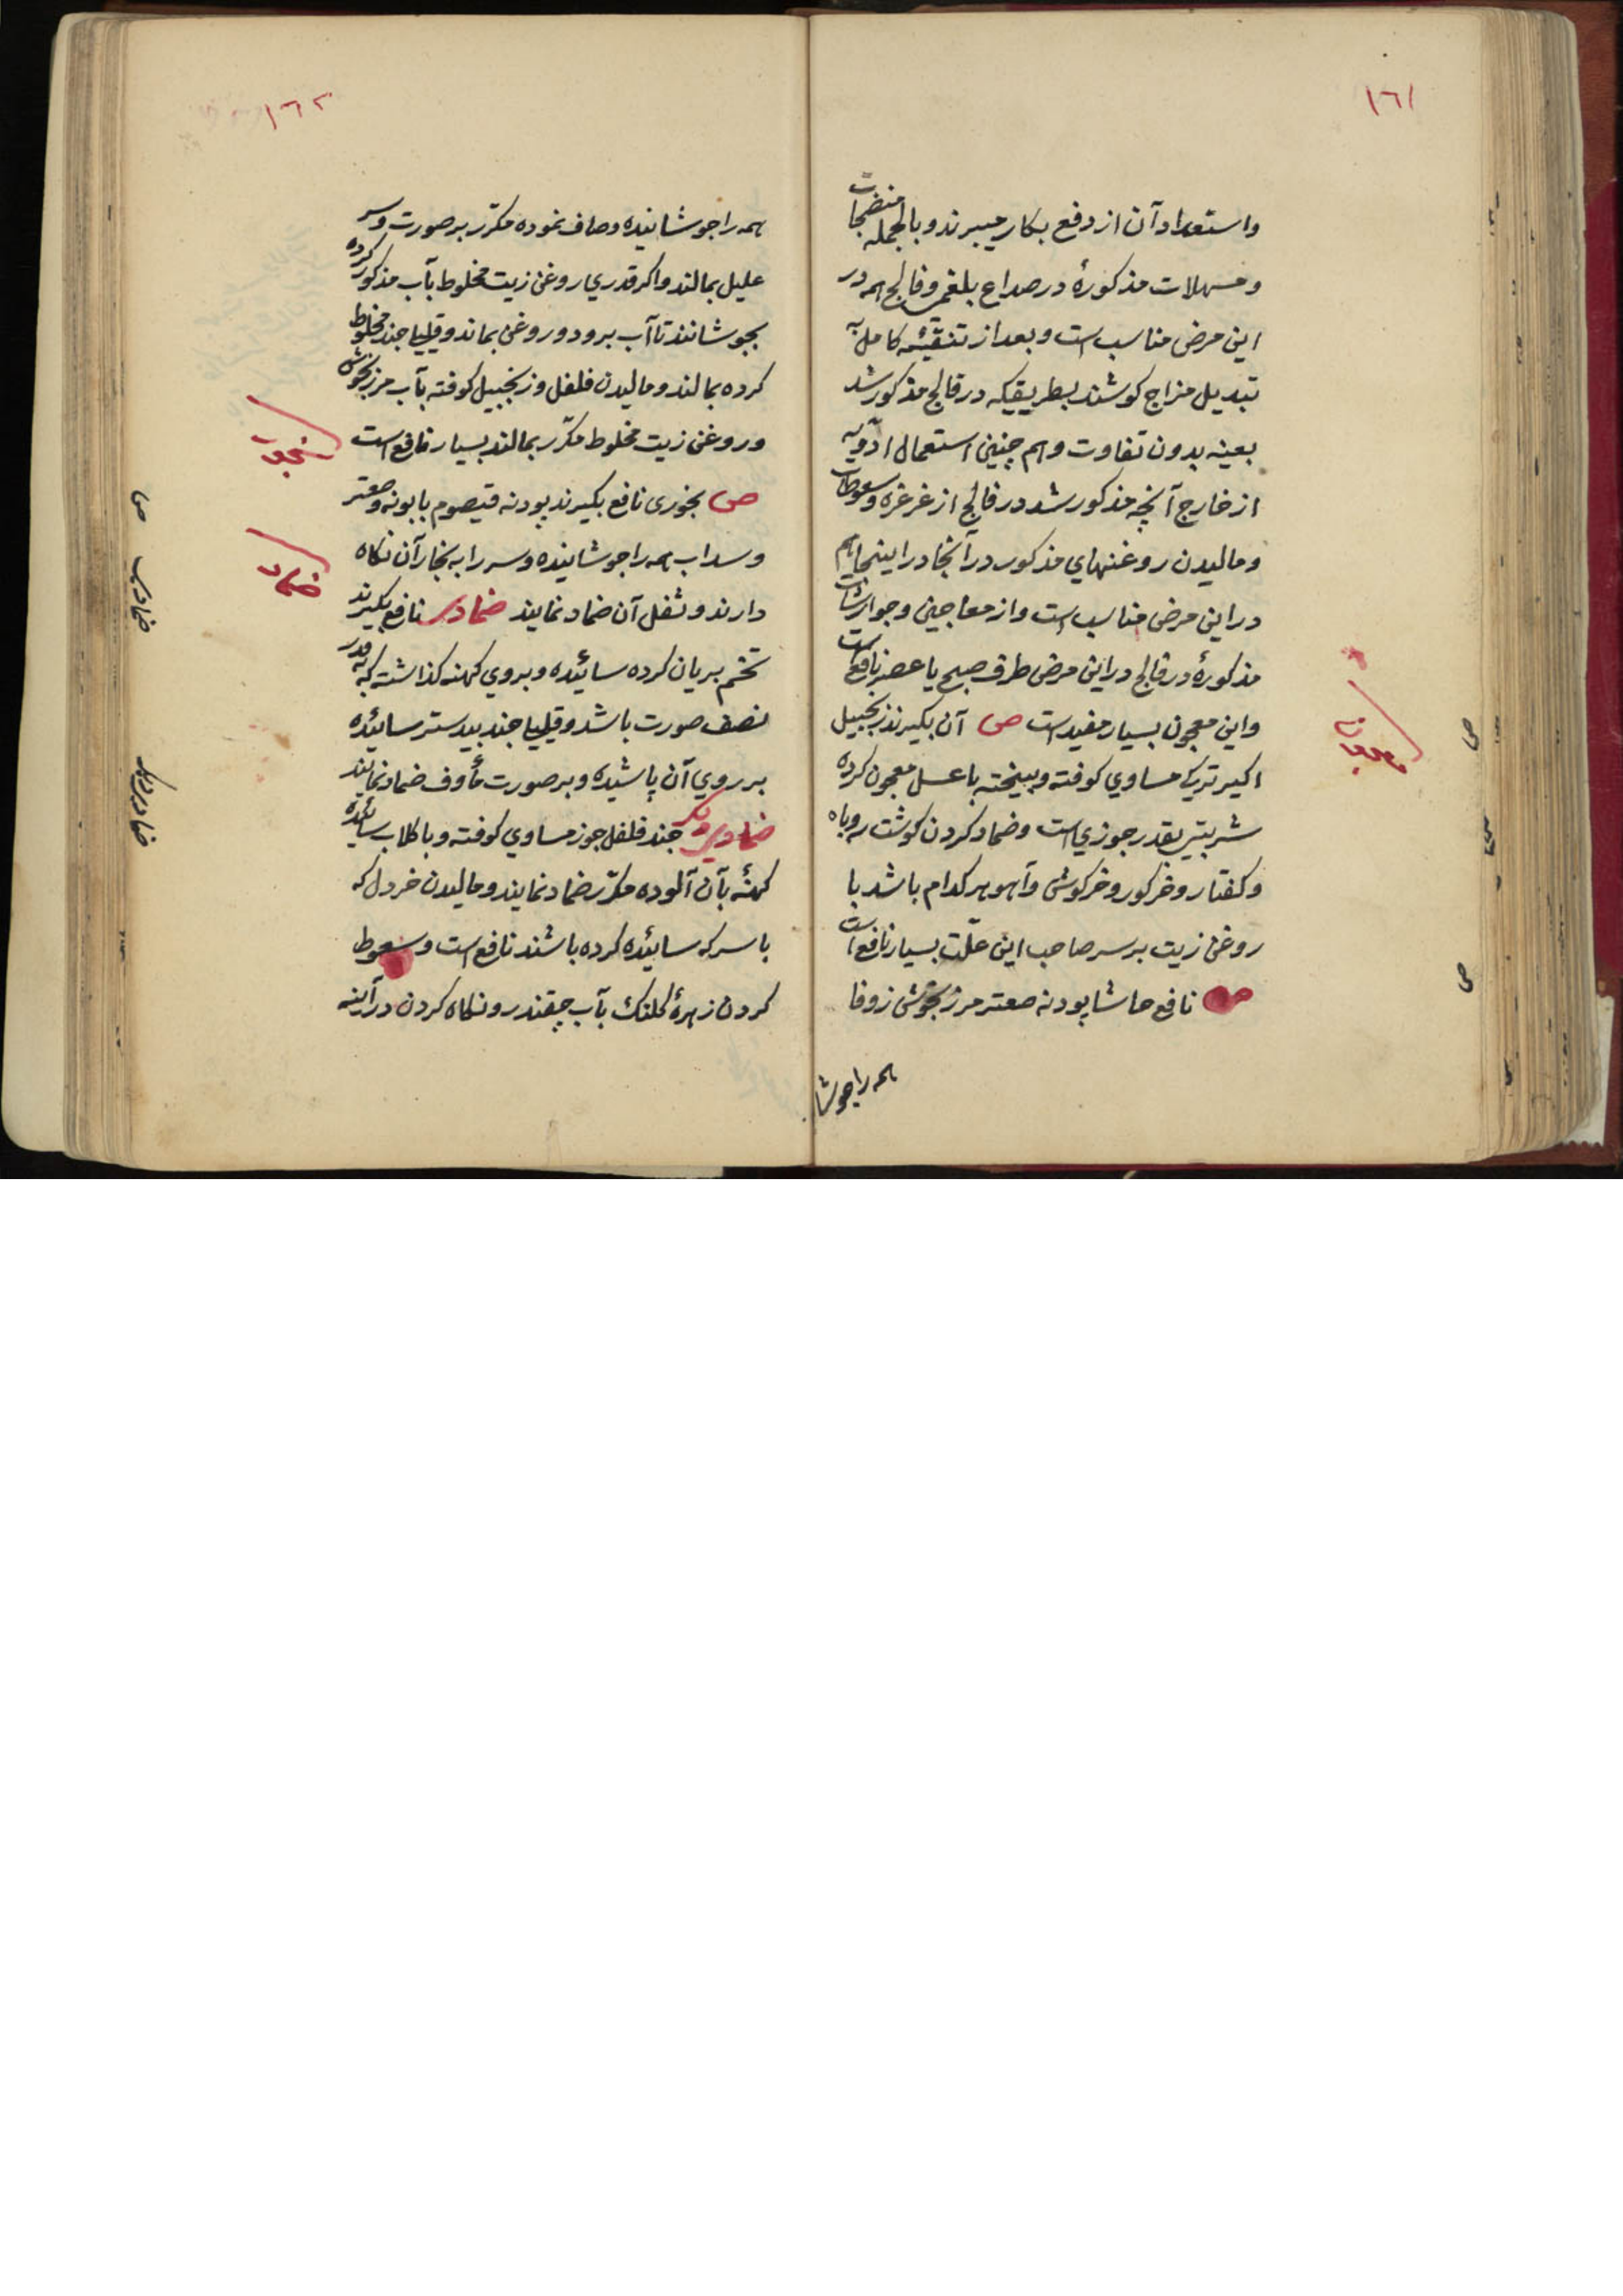 ١٦١
واستعداد آن از دفع بکار میبرند و بالجمله منضجات
و مسهلات مذکورهٔ در صداع بلغمی و فالج همه در
این مرض مناسب است و بعد از تنقیهٔ کامل به
تبدیل مزاج کوشند بطریقیکه در فالج مذکور شد
بعینه بدون تفاوت و هم چنین استعمال ادویه
از خارج آنچه مذکور شد در فالج از غرغره و سعوطات
و مالیدن روغنهاي مذکور در آنجا در اینجا هم
در این مرض مناسب است و از معاجین و جوارشات
مذکورهٔ در فالج در این مرض طرف صبح یا عصر نافع است
و این معجون بسیار مفید است ص آن بکیرند زنجبیل
اکیر ترکی مساوي کوفته و بیخته با عسل معجون کرده
شربتی بقدر جوزي است و ضماد کردن کوشت روباه
و کفتار و خرکور و خرکوش و آهو هر کدام باشد با
روغن زیت بر سر صاحب این علّت بسیار نافع است
ص نافع حاشا پودنه صعتر مرزنجوش زوفا
همه را جوشا
معجون
ص
ص
١٦٢
همه را جوشانیده و صاف نموده مکرّر بر صورت و سر
علیل بمالند و اکر قدري روغن زیت مخلوط بآب مذکور کرده
بجوشانند تا آب برود و روغن بماند و قلیلا جند مخلوط
کرده بمالند و مالیدن فلفل و زنجبیل کوفته بآب مرزنجوش
و روغن زیت مخلوط مکرّر بمالند بسیار نافع است
ص بخوری نافع بکیرند پودنه قیصوم بابونه و صعتر
و سداب همه را جوشانیده و سر را به بخار آن نکاه
دارند و ثفل آن ضماد نمایند ضمادی نافع بکیرند
تخم بریان کرده سائیده و بروي کهنه کذاشته که بقدر
نصف صورت باشد و قلیلا جند بیدستر سائیده
بر روي آن پاشیده و بر صورت مأوف ضماد نمایند
ضمادی دیکر جند فلفل جوز مساوي کوفته و با کلاب سائیده
کهنهٔ بآن آلوده مکرّر ضماد نمایند و مالیدن خردل که
با سرکه سائیده کرده باشند نافع است و سعوط
کردن زهرهٔ کلنک بآب چقندر و نکاه کردن در آینه
بخور
ضماد
ص
ضمادی
ضماد دیکر